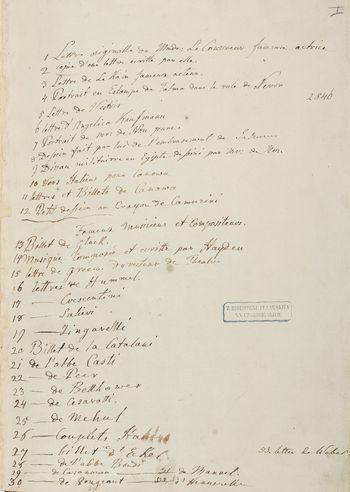 I
1 Lettre originalle de Madme Le Couvreur fameuse actrice
2 copie d'une lettre ecritte par elle.
3 Lettre de Le Kain fameux acteur.
4 Portrait en Estampe de Talma dans le role de Neron
2846
5 Lettre de Vestris
6 lettre d'Angelica Kaufmann
7 Portrait de Mor de Non jeune.
8 Dessin fait par lui de l'embrasement de
9 Divan militaire en Egypte dessiné par Mor de Non
10 Vers Italiens pour Canova
11 lettres et Billets de Canova
12 Petit dessin au Crayon de Camucini
Fameux Musiciens et Compositeurs.
13 Billet de Gluck.
14 Musique composé et ecritte par Hayden
15 lettre de directeur de Theatre
16 lettres de Hummel.
17 — Crescentini
18 — Salieri
19 — Zingarelli
20 Billet de la Catalani
21 de l'abbe Casti
22 — de Peer
23 — de Bethhowen
24 — de Cesarotti.
25 — de Mehul
26 — Couplets
27 — billet d'
28 — de l'abbe
29 — de
30 — de
31 de Manuel.
32 d'
33 lettre de Weber
Z BIBLIOTEKI PULASKIEJ
XX CZARTORYSKICH